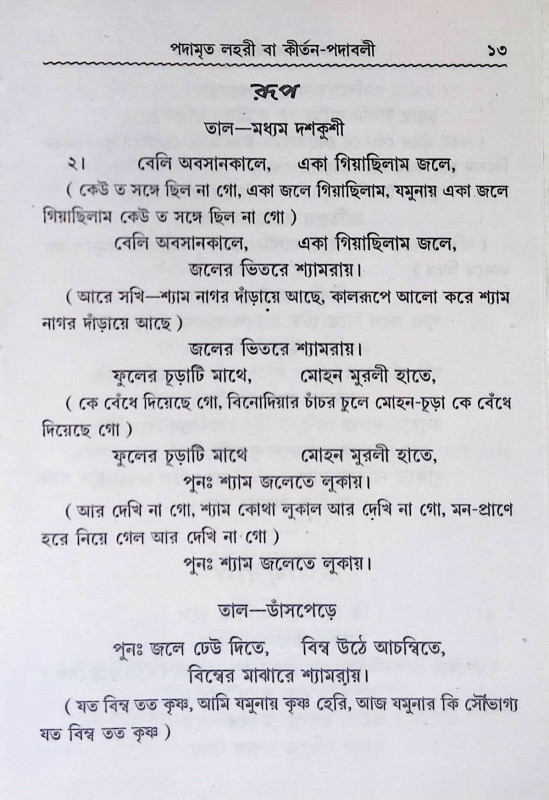 পদামৃত লহরী বা কীর্তন-পদাবলী ১৩
রূপ
তাল—মধ্যম দশকুশী
২। বেলি অবসানকালে, একা গিয়াছিলাম জলে,
( কেউ ত সঙ্গে ছিল না গো, একা জলে গিয়াছিলাম, যমুনায় একা জলে
গিয়াছিলাম কেউ ত সঙ্গে ছিল না গো )
বেলি অবসানকালে, একা গিয়াছিলাম জলে,
জলের ভিতরে শ্যামরায়।
( আরে সখি—শ্যাম নাগর দাঁড়ায়ে আছে, কালরূপে আলো করে শ্যাম
নাগর দাঁড়ায়ে আছে )
জলের ভিতরে শ্যামরায়।
ফুলের চূড়াটি মাথে, মোহন মুরলী হাতে,
( কে বেঁধে দিয়েছে গো, বিনোদিয়ার চাঁচর চুলে মোহন-চূড়া কে বেঁধে
দিয়েছে গো )
ফুলের চূড়াটি মাথে মোহন মুরলী হাতে,
পুনঃ শ্যাম জলেতে লুকায়।
( আর দেখি না গো, শ্যাম কোথা লুকাল আর দেখি না গো, মন-প্রাণে
হরে নিয়ে গেল আর দেখি না গো )
পুনঃ শ্যাম জলেতে লুকায়।
তাল—ডাঁসপেড়ে
পুনঃ জলে ঢেউ দিতে, বিম্ব উঠে আচম্বিতে,
বিম্বের মাঝারে শ্যামরায়।
( যত বিম্ব তত কৃষ্ণ, আমি যমুনায় কৃষ্ণ হেরি, আজ যমুনার কি সৌভাগ্য
যত বিম্ব তত কৃষ্ণ )